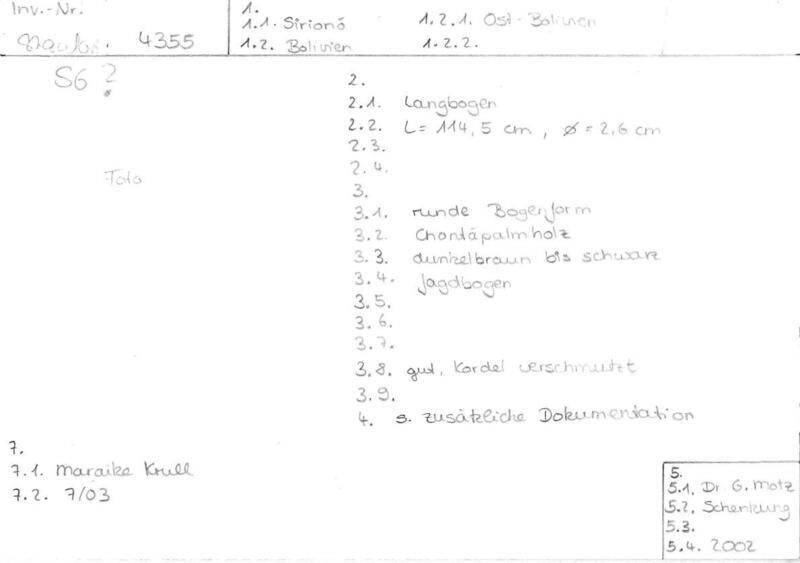 Inv.-Nr.
4355
1.
1.1. Sirionó
1.2. Bolivien
1.2.1. Ost-Bolivien
1.2.2.
S6 ?
Foto
2.
2.1. Langbogen
2.2. L= 114,5 cm, ø = 2,6 cm
2.3.
2.4.
3.
3.1. runde Bogenform
3.2. Chontápalmholz
3.3. dunkelbraun bis schwarz
3.4. Jagdbogen
3.5.
3.6.
3.7.
3.8. gut, Kordel verschmutzt
3.9.
4. s. zusätzliche Dokumentation
7.
7.1. Maraike Krull
7.2. 7/03
5.
5.1. Dr. G. Motz
5.2. Schenkung
5.3.
5.4. 2002